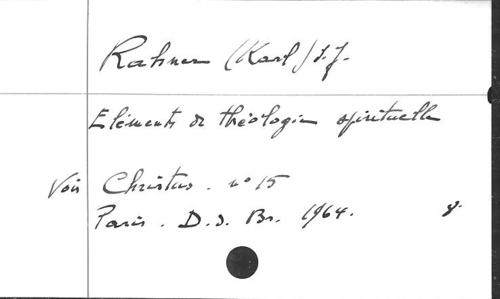 Rahner (Karl) s.j.
Eléments de théologie spirituelle
Voir Christus . n° 15
Paris . D.d. Br. 1964. 8.